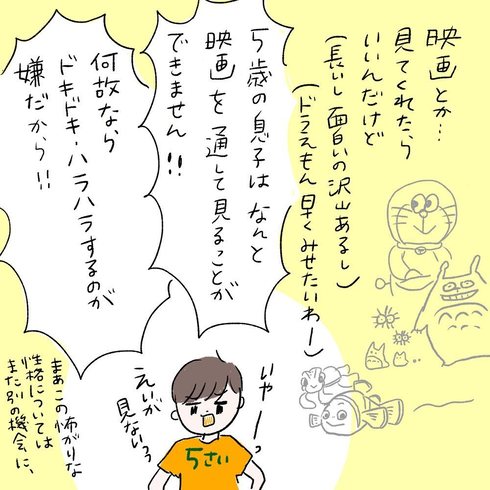 映画とか…
見てくれたら
いいんだけど
(長いし面白いの沢山あるし)
(ドラえもん早くみせたいわー)
5歳の息子はなんと
映画を通して見ることが
できません!!
何故なら
ドキドキ・ハラハラするのが
嫌だから!!
いやーっ
えいが
見ないっ
5さい
まあこの怖がりな
性格については
また別の機会に、